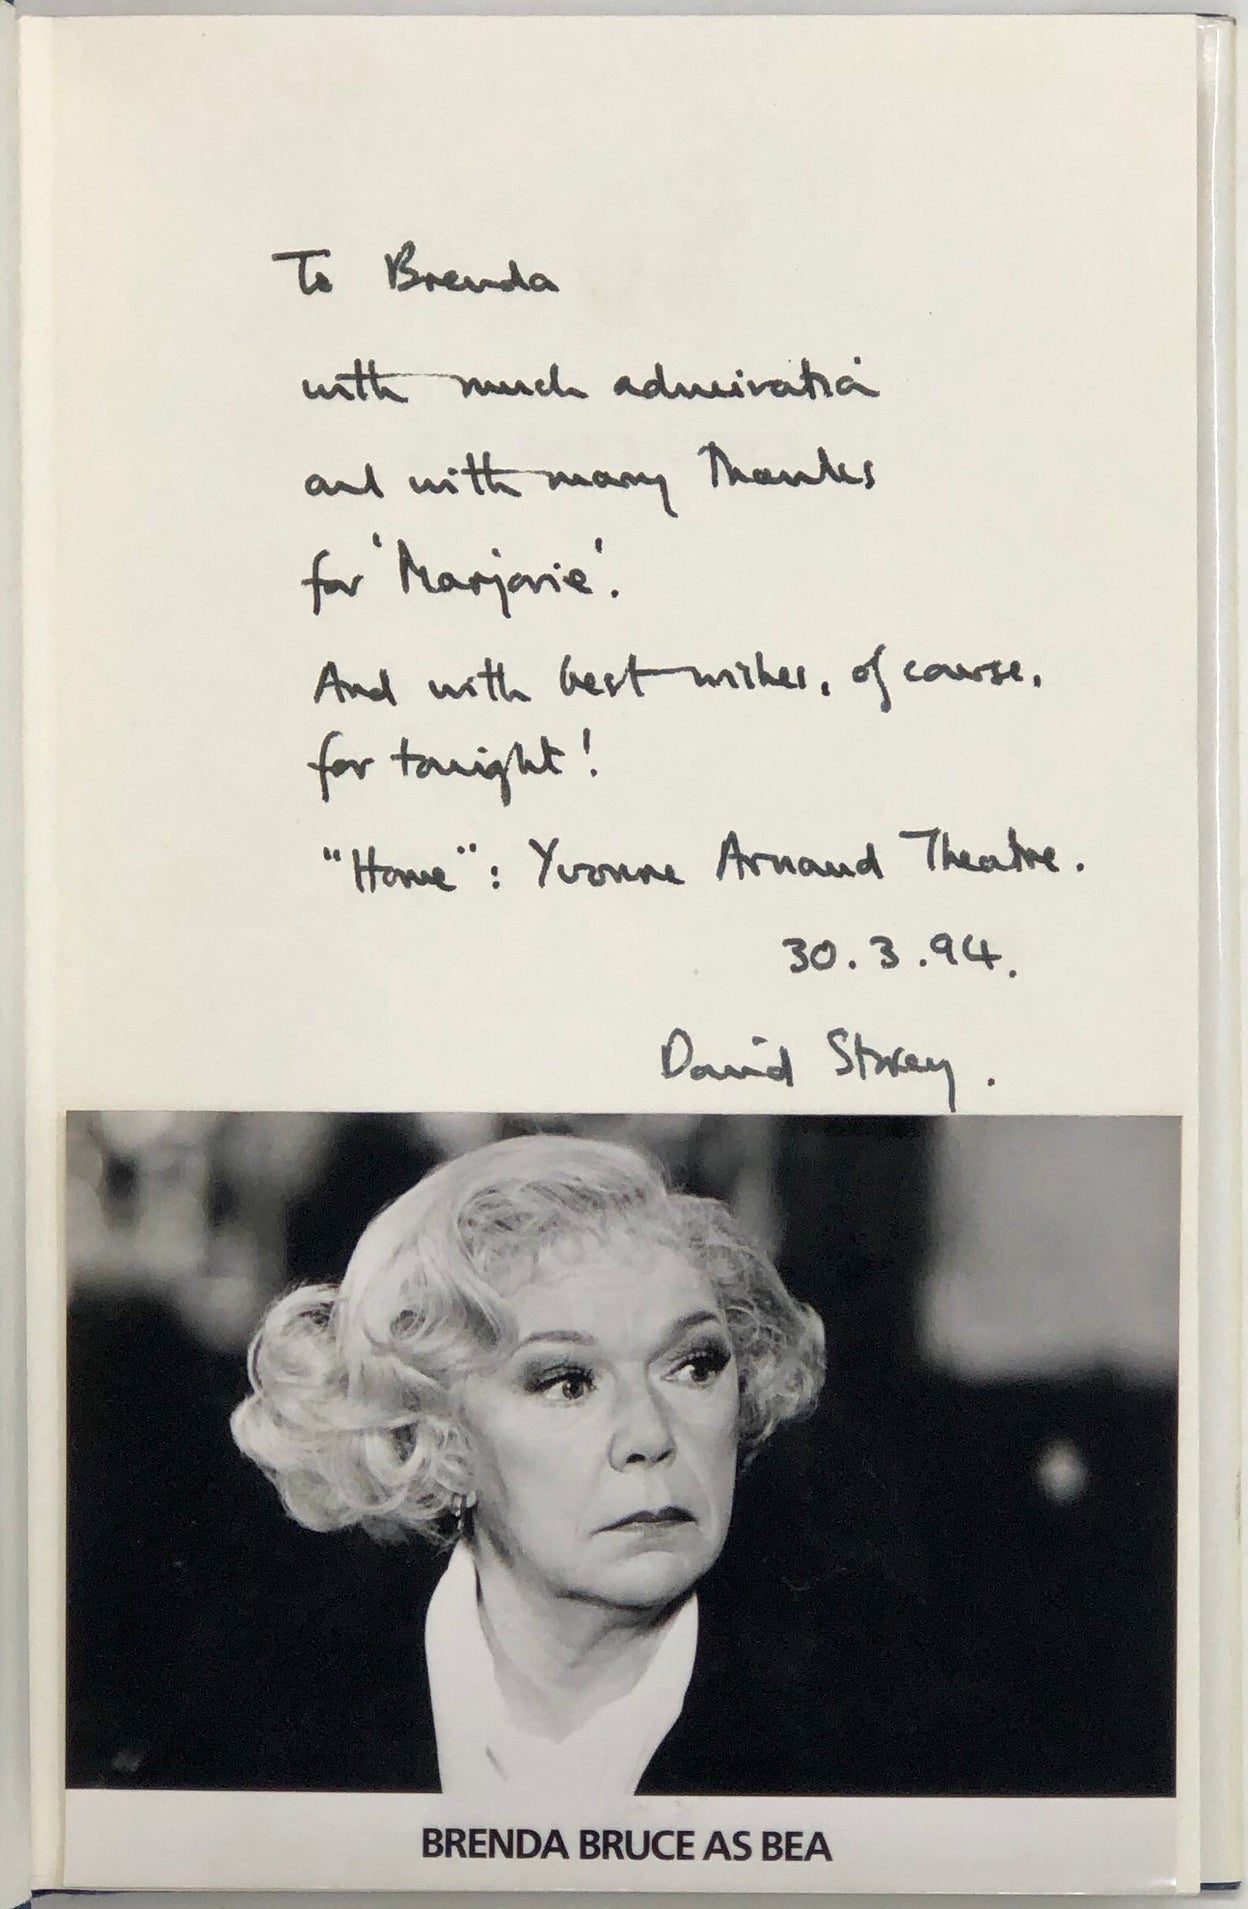 To Brenda
with much admiration
and with many Thanks
for 'Marjorie'.
And with best wishes, of course,
for tonight!
"Home": Yvonne Arnaud Theatre.
30.3.94.
David Storey.
BRENDA BRUCE AS BEA